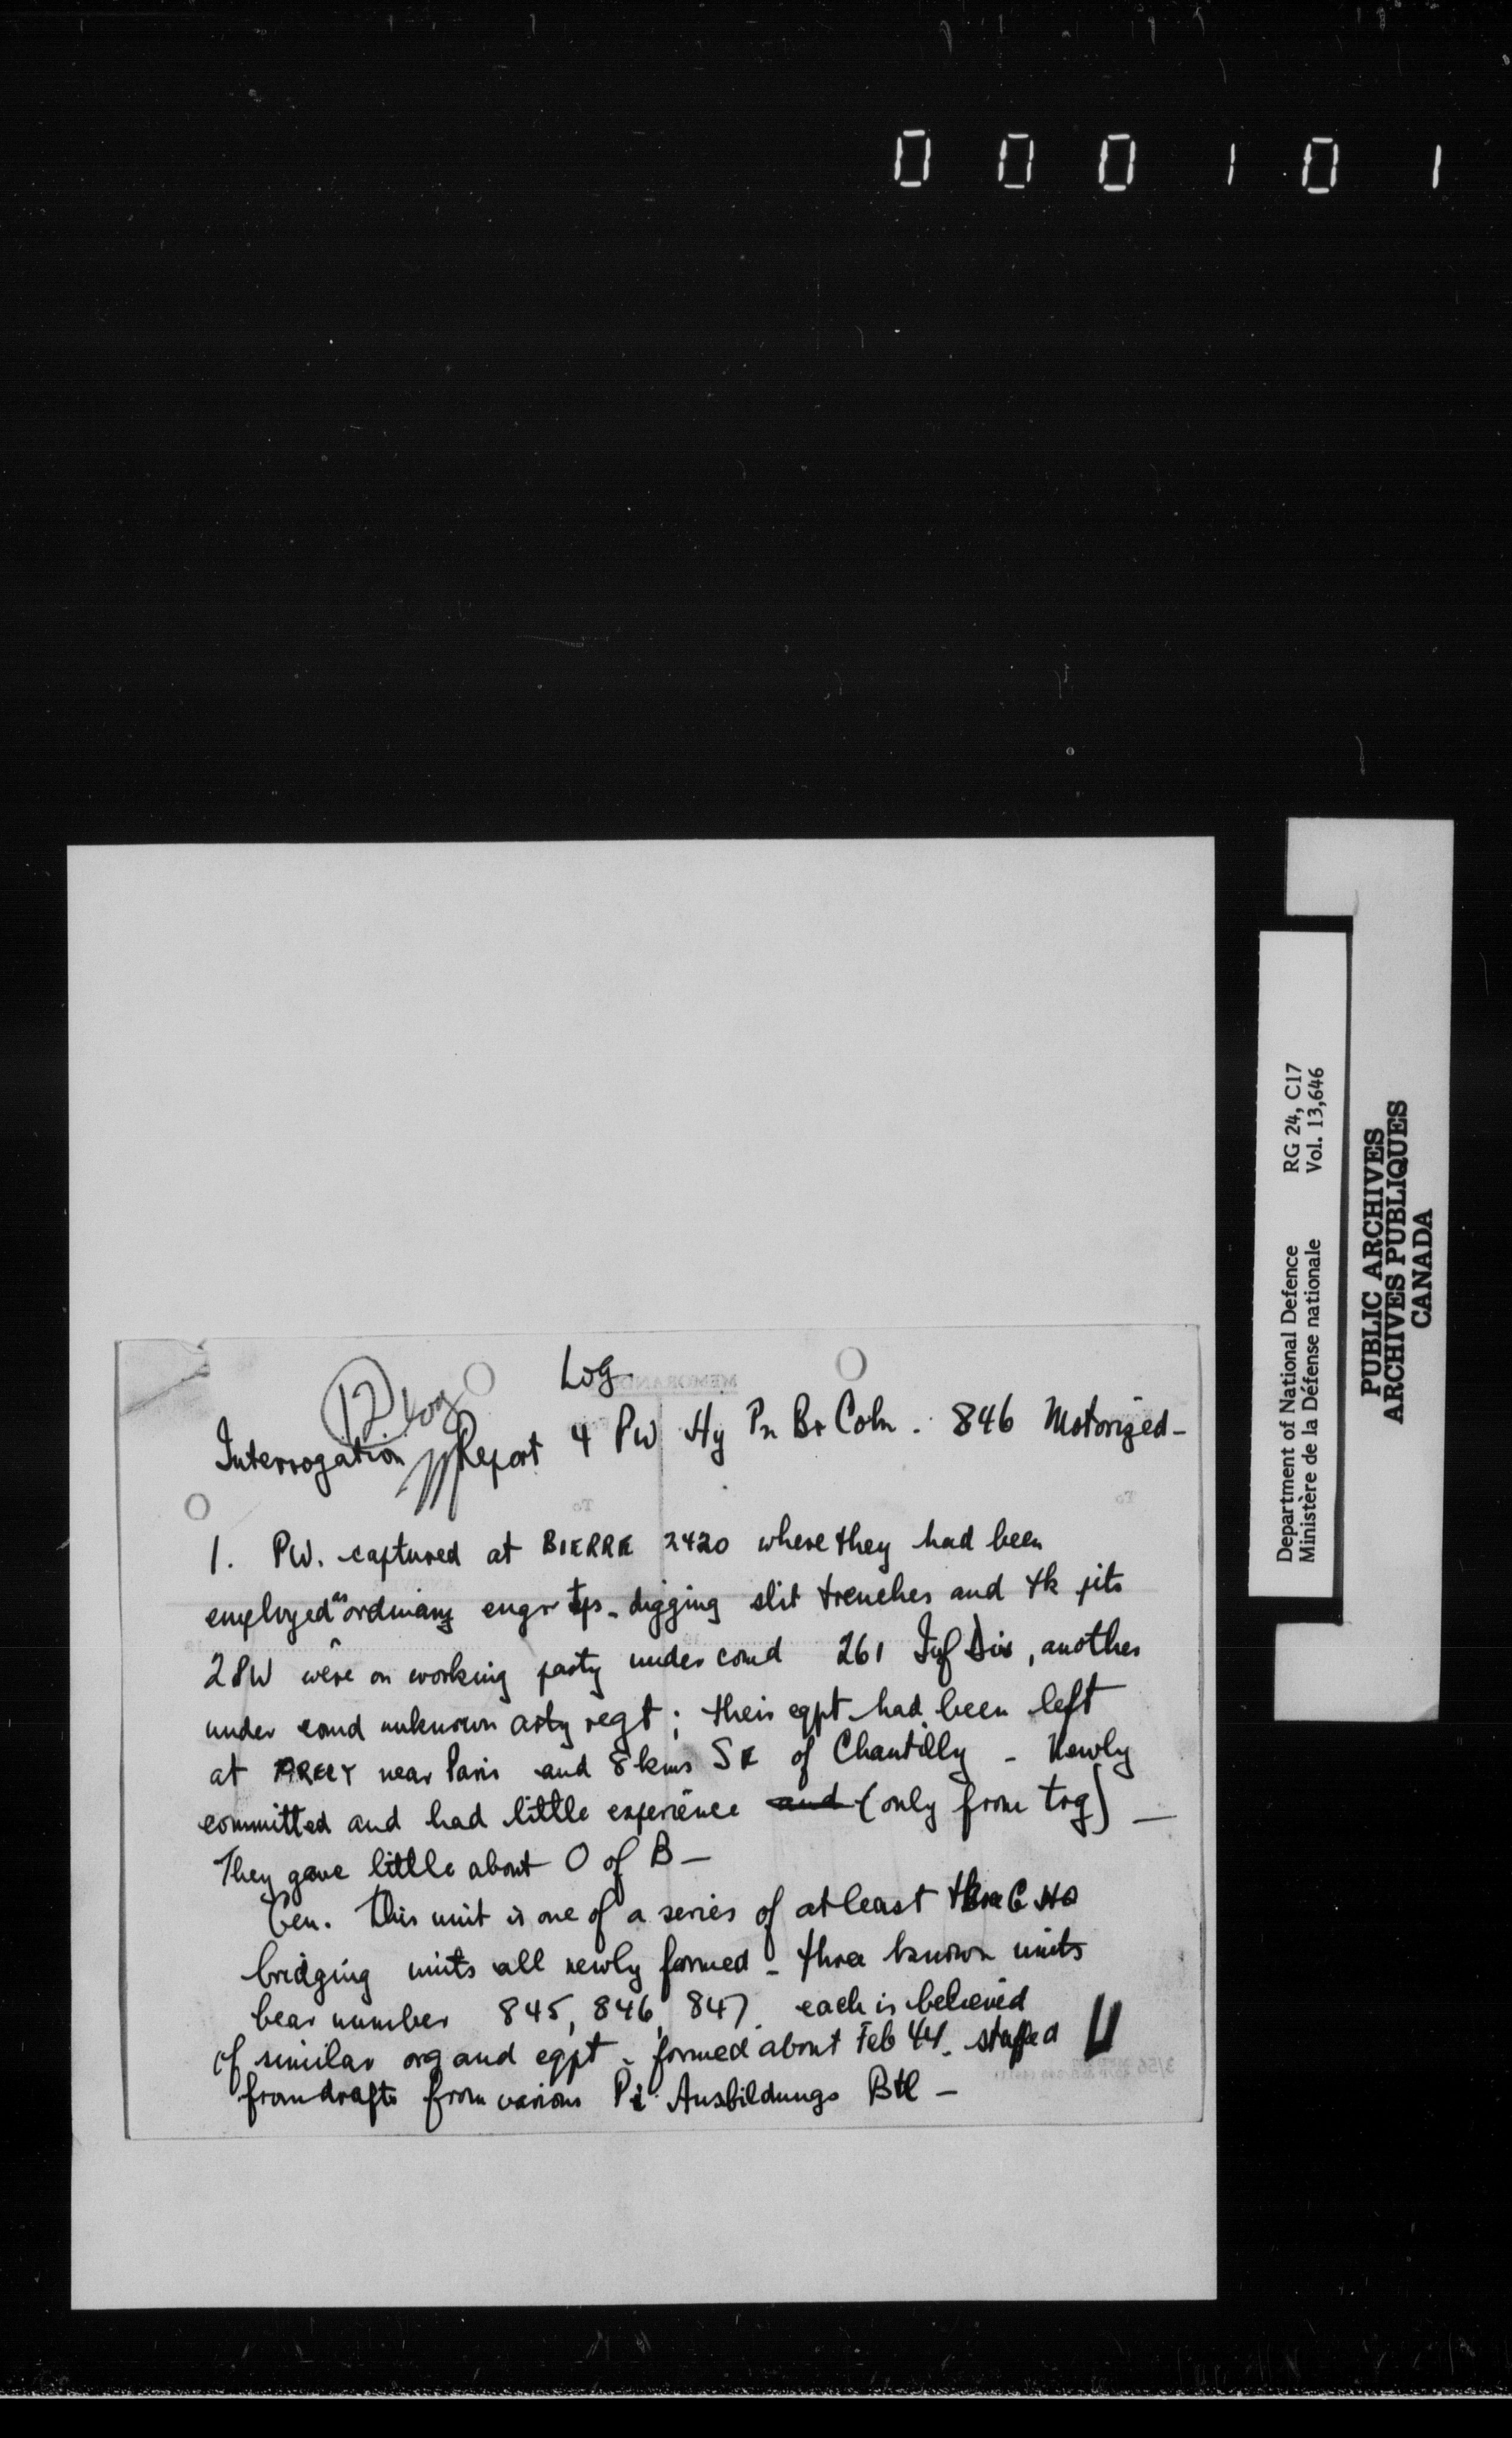 000101
Log
12 Log
Interrogation Report 4 PW Hy Pn Br Coln. 846 Motorized-
1. PW. captured at BIERRE 2420 where they had been
employed as ordinary engr tps - digging slit trenches and tk pits
2 PW were on working party under comd 261 Inf Div, another
under comd unknown arty regt; their eqpt had been left
at near Paris and 8 kms SE of Chantilly - Newly
committed and had little experience and (only from trg) -
They gave little about O of B -
Gen. This unit is one of a series of at least
bridging units all newly formed - three known units
bear number 845, 846, 847. each is believed
of similar org and eqpt - formed about Feb 44. staffed
from drafts from various Pi Ausbildungs Btl -
MEMORANDUM
To
To
Department of National Defence RG 24, C17
Ministère de la Défense nationale Vol. 13,646
PUBLIC ARCHIVES
ARCHIVES PUBLIQUES
CANADA